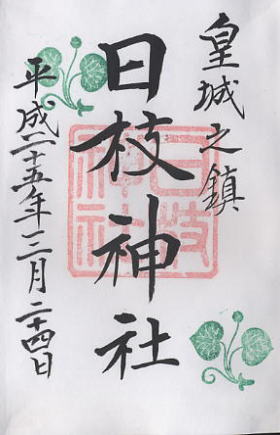 皇城之鎮
日枝神社
日枝
神社
平成二十五年三月二十四日